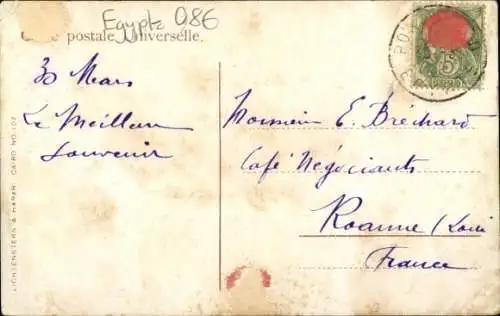 Egypte 086
postale Universelle.
30 Mars
Le Meilleur
Souvenir
LICHTENSTERN & HARARI CAIRO NO. 107
Monsieur E. Bréchard
Café Négociants
Roanne (Loire
France
5